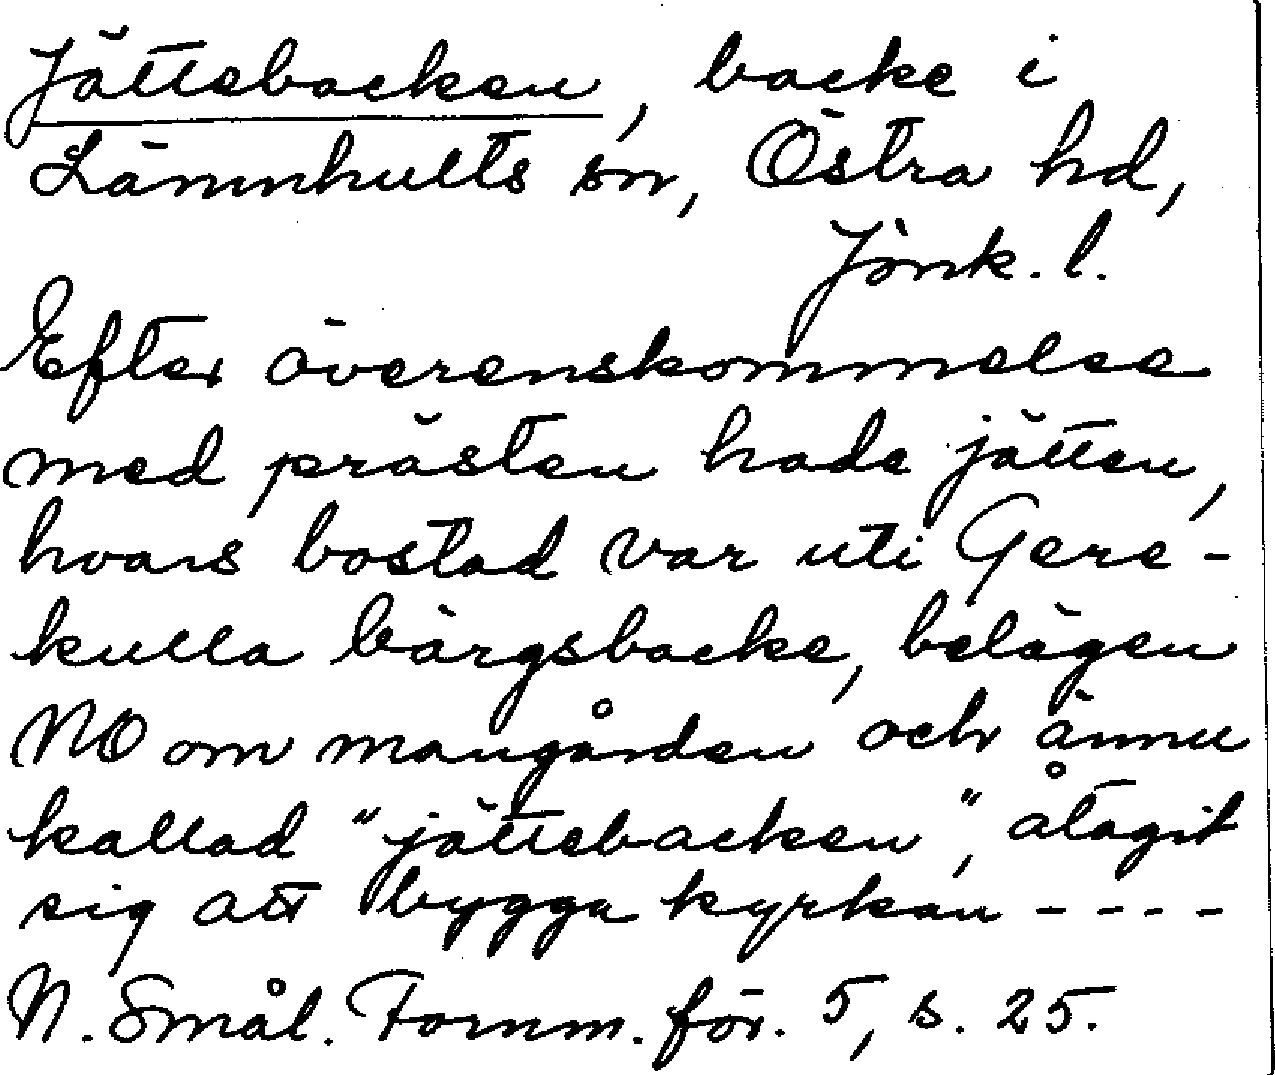 Jättebacken, backe i
Lännhults sn, Östra hd,
Jönk. l.
Efter överenskommelse
med prästen hade jätten,
hvars bostad var uti Gere-
kulla bärgsbacke, belägen
NO om mangården och ännu
kallad "jättebacken", åtagit
sig att bygga kyrkan - - - -
N. Smål. Fornm. för. 5, s. 25.